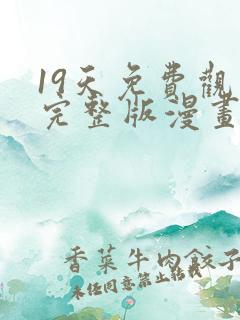 19天免費觀
完整版漫畫
香菜牛肉餃子
未经同意禁止转载